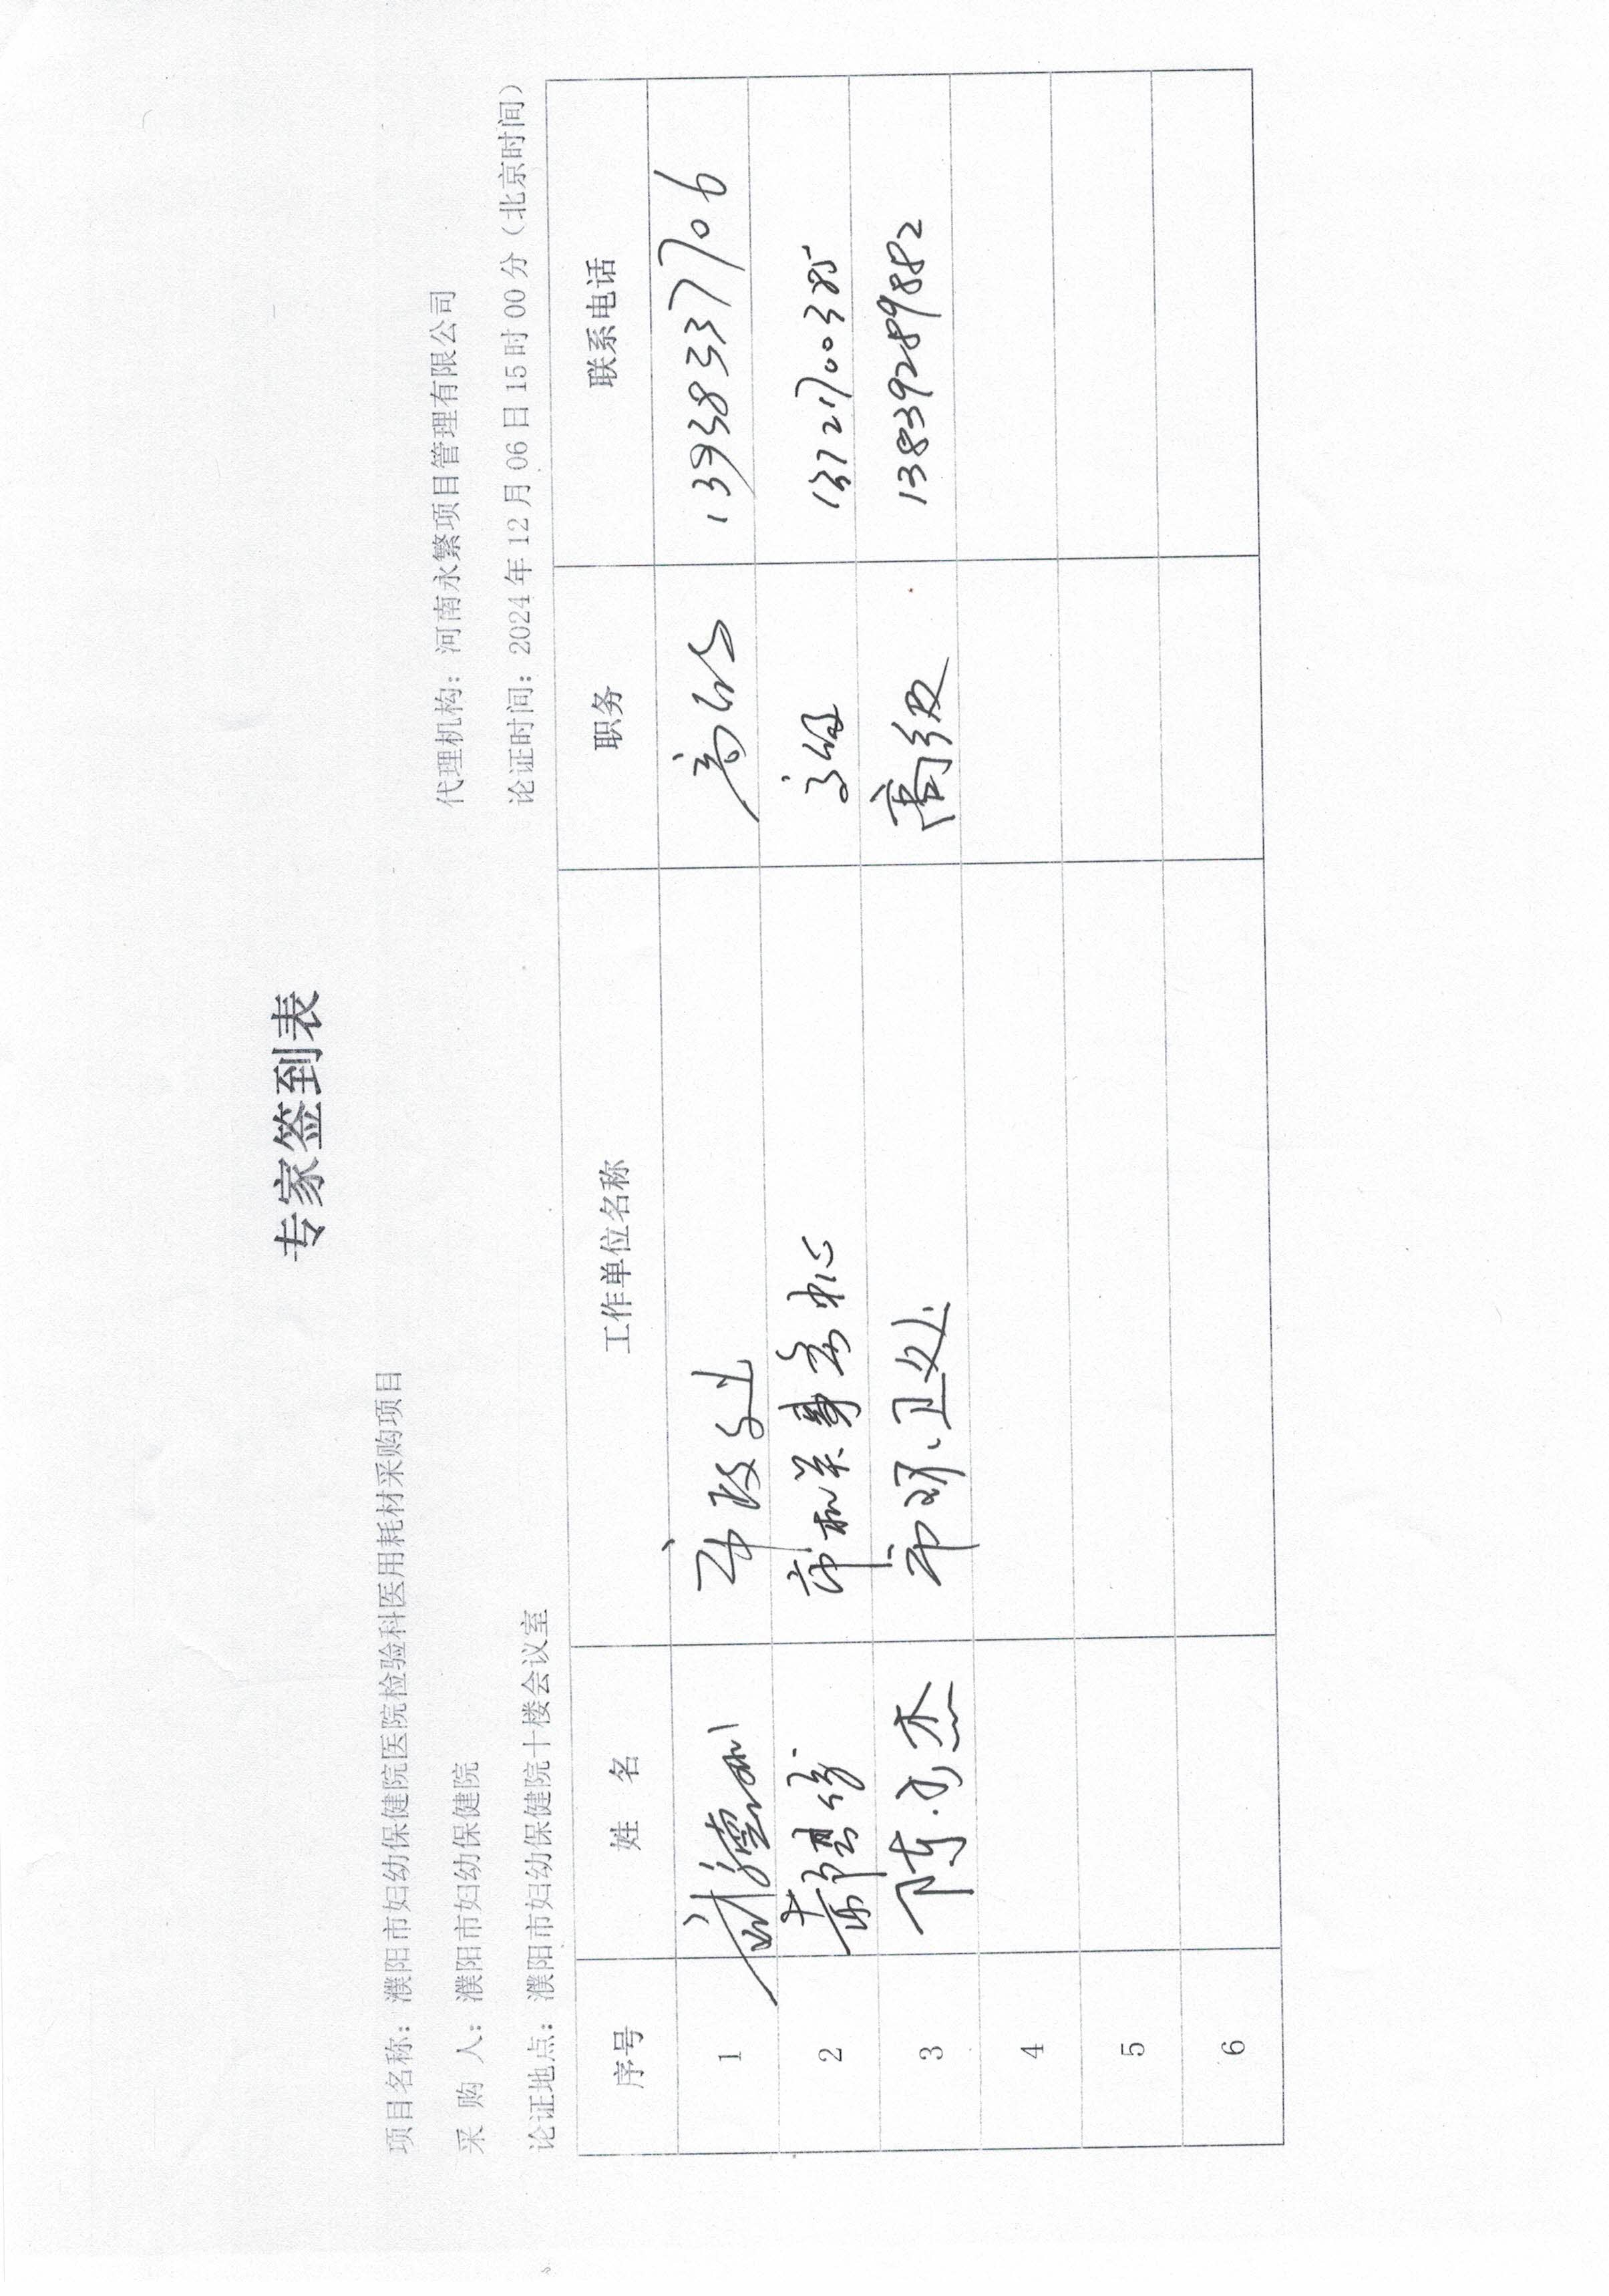 专家签到表
项目名称：濮阳市妇幼保健院医院检验科医用耗材采购项目
采 购 人：濮阳市妇幼保健院 代理机构：河南永繁项目管理有限公司
论证地点：濮阳市妇幼保健院十楼会议室 论证时间：2024 年 12 月 06 日 15 时 00 分（北京时间）
序号 姓 名 工作单位名称 职务 联系电话
1 高级 13938337706
2 市机关事务中心 高级 13721700385
3 陈 杰 市 卫处 高级 13839289882
4
5
6